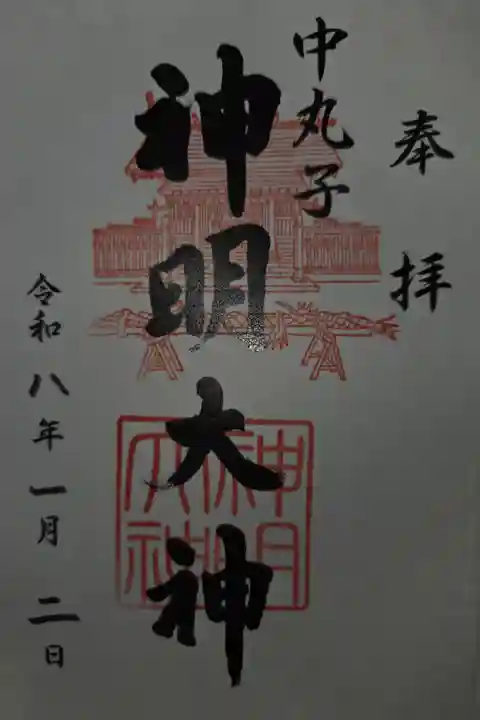 奉拝
中丸子
神明大神
令和八年一月二日
神明大神